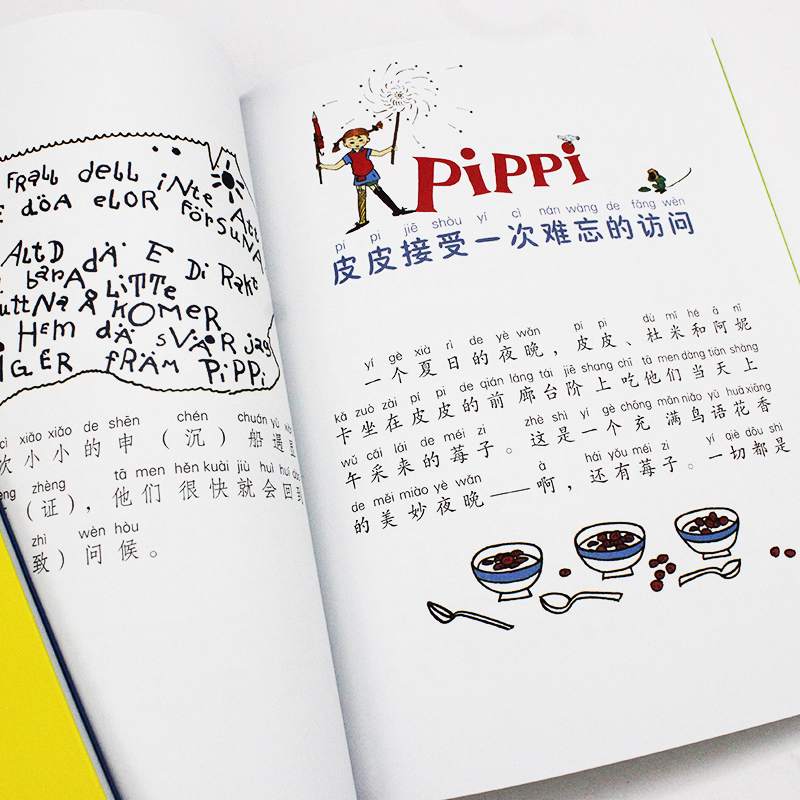 FRALL dELL iNTE Att
E döA eLOR FÖRSUNA
ALtD dÄ E Di RAKt
baRA LiTTE
uttNA & KOMER
HEM dÄ SVÄR jag
NGER fRÄM PiPPi
cì xiǎo xiǎo de shēn chén chuán yù
次小小的申（沉）船遇
zhèng tā men hěn kuài jiù huì huí dào
（证），他们很快就会回到
zhì wèn hòu
致）问候。
PiPPi
pí pi jiē shòu yí cì nán wàng de fǎng wèn
皮皮接受一次难忘的访问
yí gè xià rì de yè wǎn pí pi dù mǐ hé ā nī
一个夏日的夜晚，皮皮、杜米和阿妮
kǎ zuò zài pí pi de qián láng tái jiē shang chī tā men dàng tiān shàng
卡坐在皮皮的前廊台阶上吃他们当天上
wǔ cǎi lái de méi zi zhè shì yí gè chōng mǎn niǎo yǔ huā xiāng
午采来的莓子。这是一个充满鸟语花香
de měi miào yè wǎn à hái yǒu méi zi yí qiè dōu shì
的美妙夜晚——啊，还有莓子。一切都是